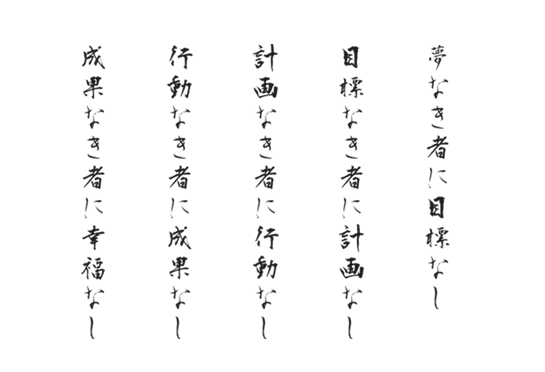 夢なき者に目標なし
目標なき者に計画なし
計画なき者に行動なし
行動なき者に成果なし
成果なき者に幸福なし